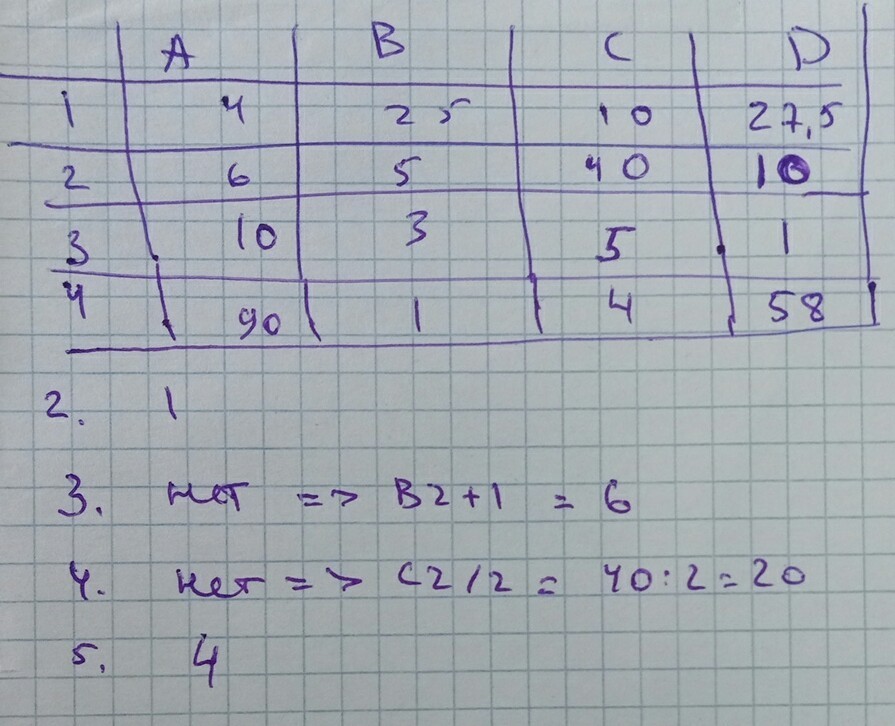 A B C D
1 4 25 10 27,5
2 6 5 40 10
3 10 3 5 1
4 90 1 4 58
2. 1
3. нет => B2+1 = 6
4. нет => C2/2 = 40:2=20
5. 4